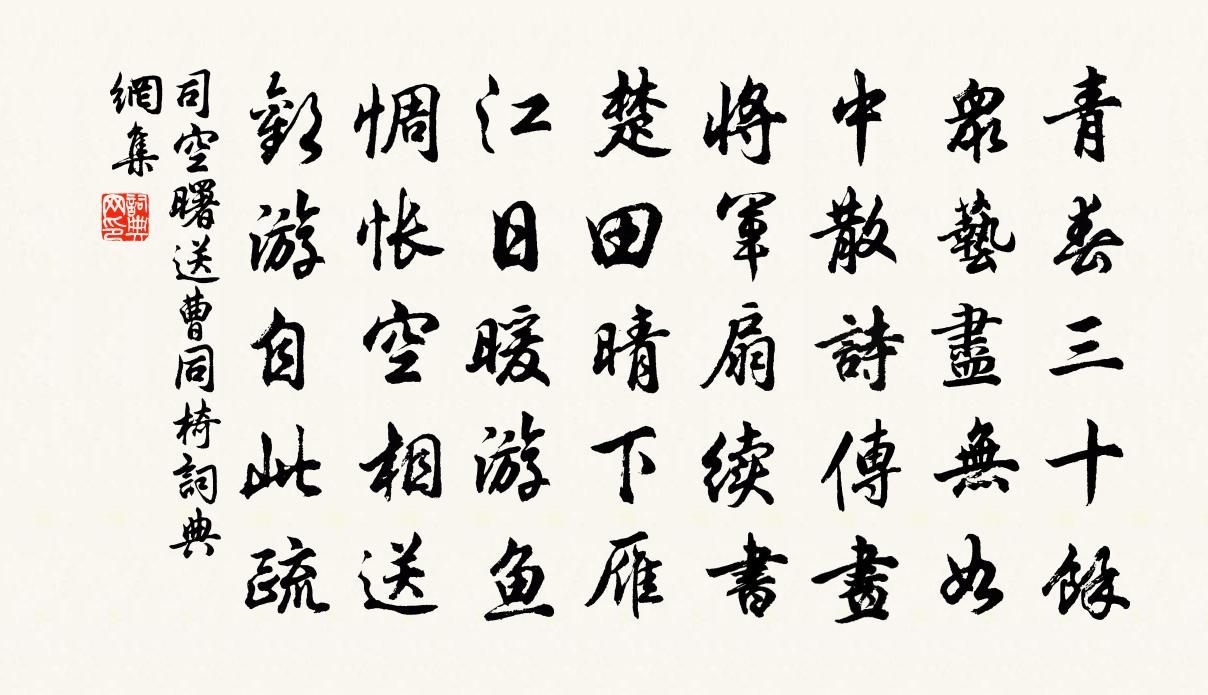 青春三十餘
衆藝盡無如
中散詩傳畫
將軍扇續書
楚田晴下雁
江日暖游魚
惆悵空相送
歡游自此疏
司空曙送曹同椅詞典
網集
詞典
网印